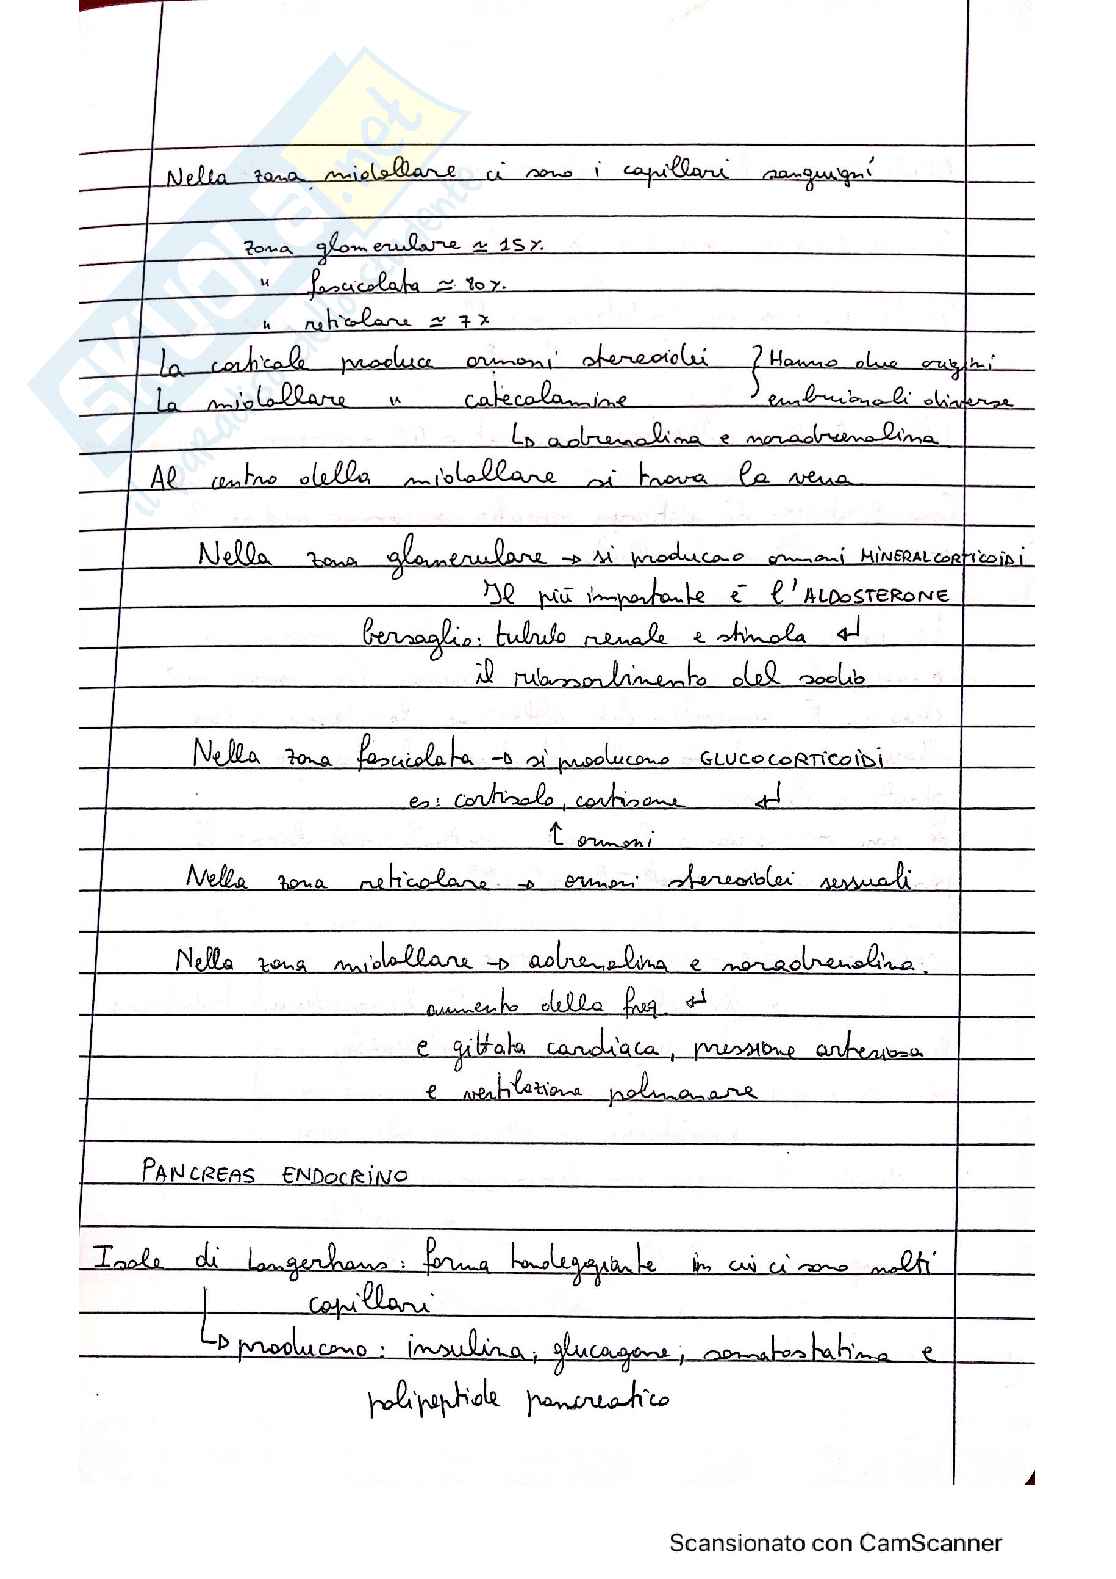 Nella zona midollare ci sono i capillari sanguigni
zona glomerulare ≃ 15%
" fascicolata ≃ 80%
" reticolare ≃ 7%
La corticale produce ormoni steroidei } Hanno due origini
La midollare " catecolamine } embrionali diverse
↳ adrenalina e noradrenalina
Al centro della midollare si trova la vena
Nella zona glomerulare → si producono ormoni MINERALCORTICOIDI
Il più importante è l'ALDOSTERONE
bersaglio: tubulo renale e stimola ↵
il riassorbimento del sodio
Nella zona fascicolata → si producono GLUCOCORTICOIDI
es: cortisolo, cortisone ↵
↑ ormoni
Nella zona reticolare → ormoni steroidei sessuali
Nella zona midollare → adrenalina e noradrenalina.
aumento della freq. ↵
e gittata cardiaca, pressione arteriosa
e ventilazione polmonare
PANCREAS ENDOCRINO
Isole di Langerhans: forma tondeggiante in cui ci sono molti
capillari
↳ producono: insulina, glucagone, somatostatina e
polipeptide pancreatico
Scansionato con CamScanner